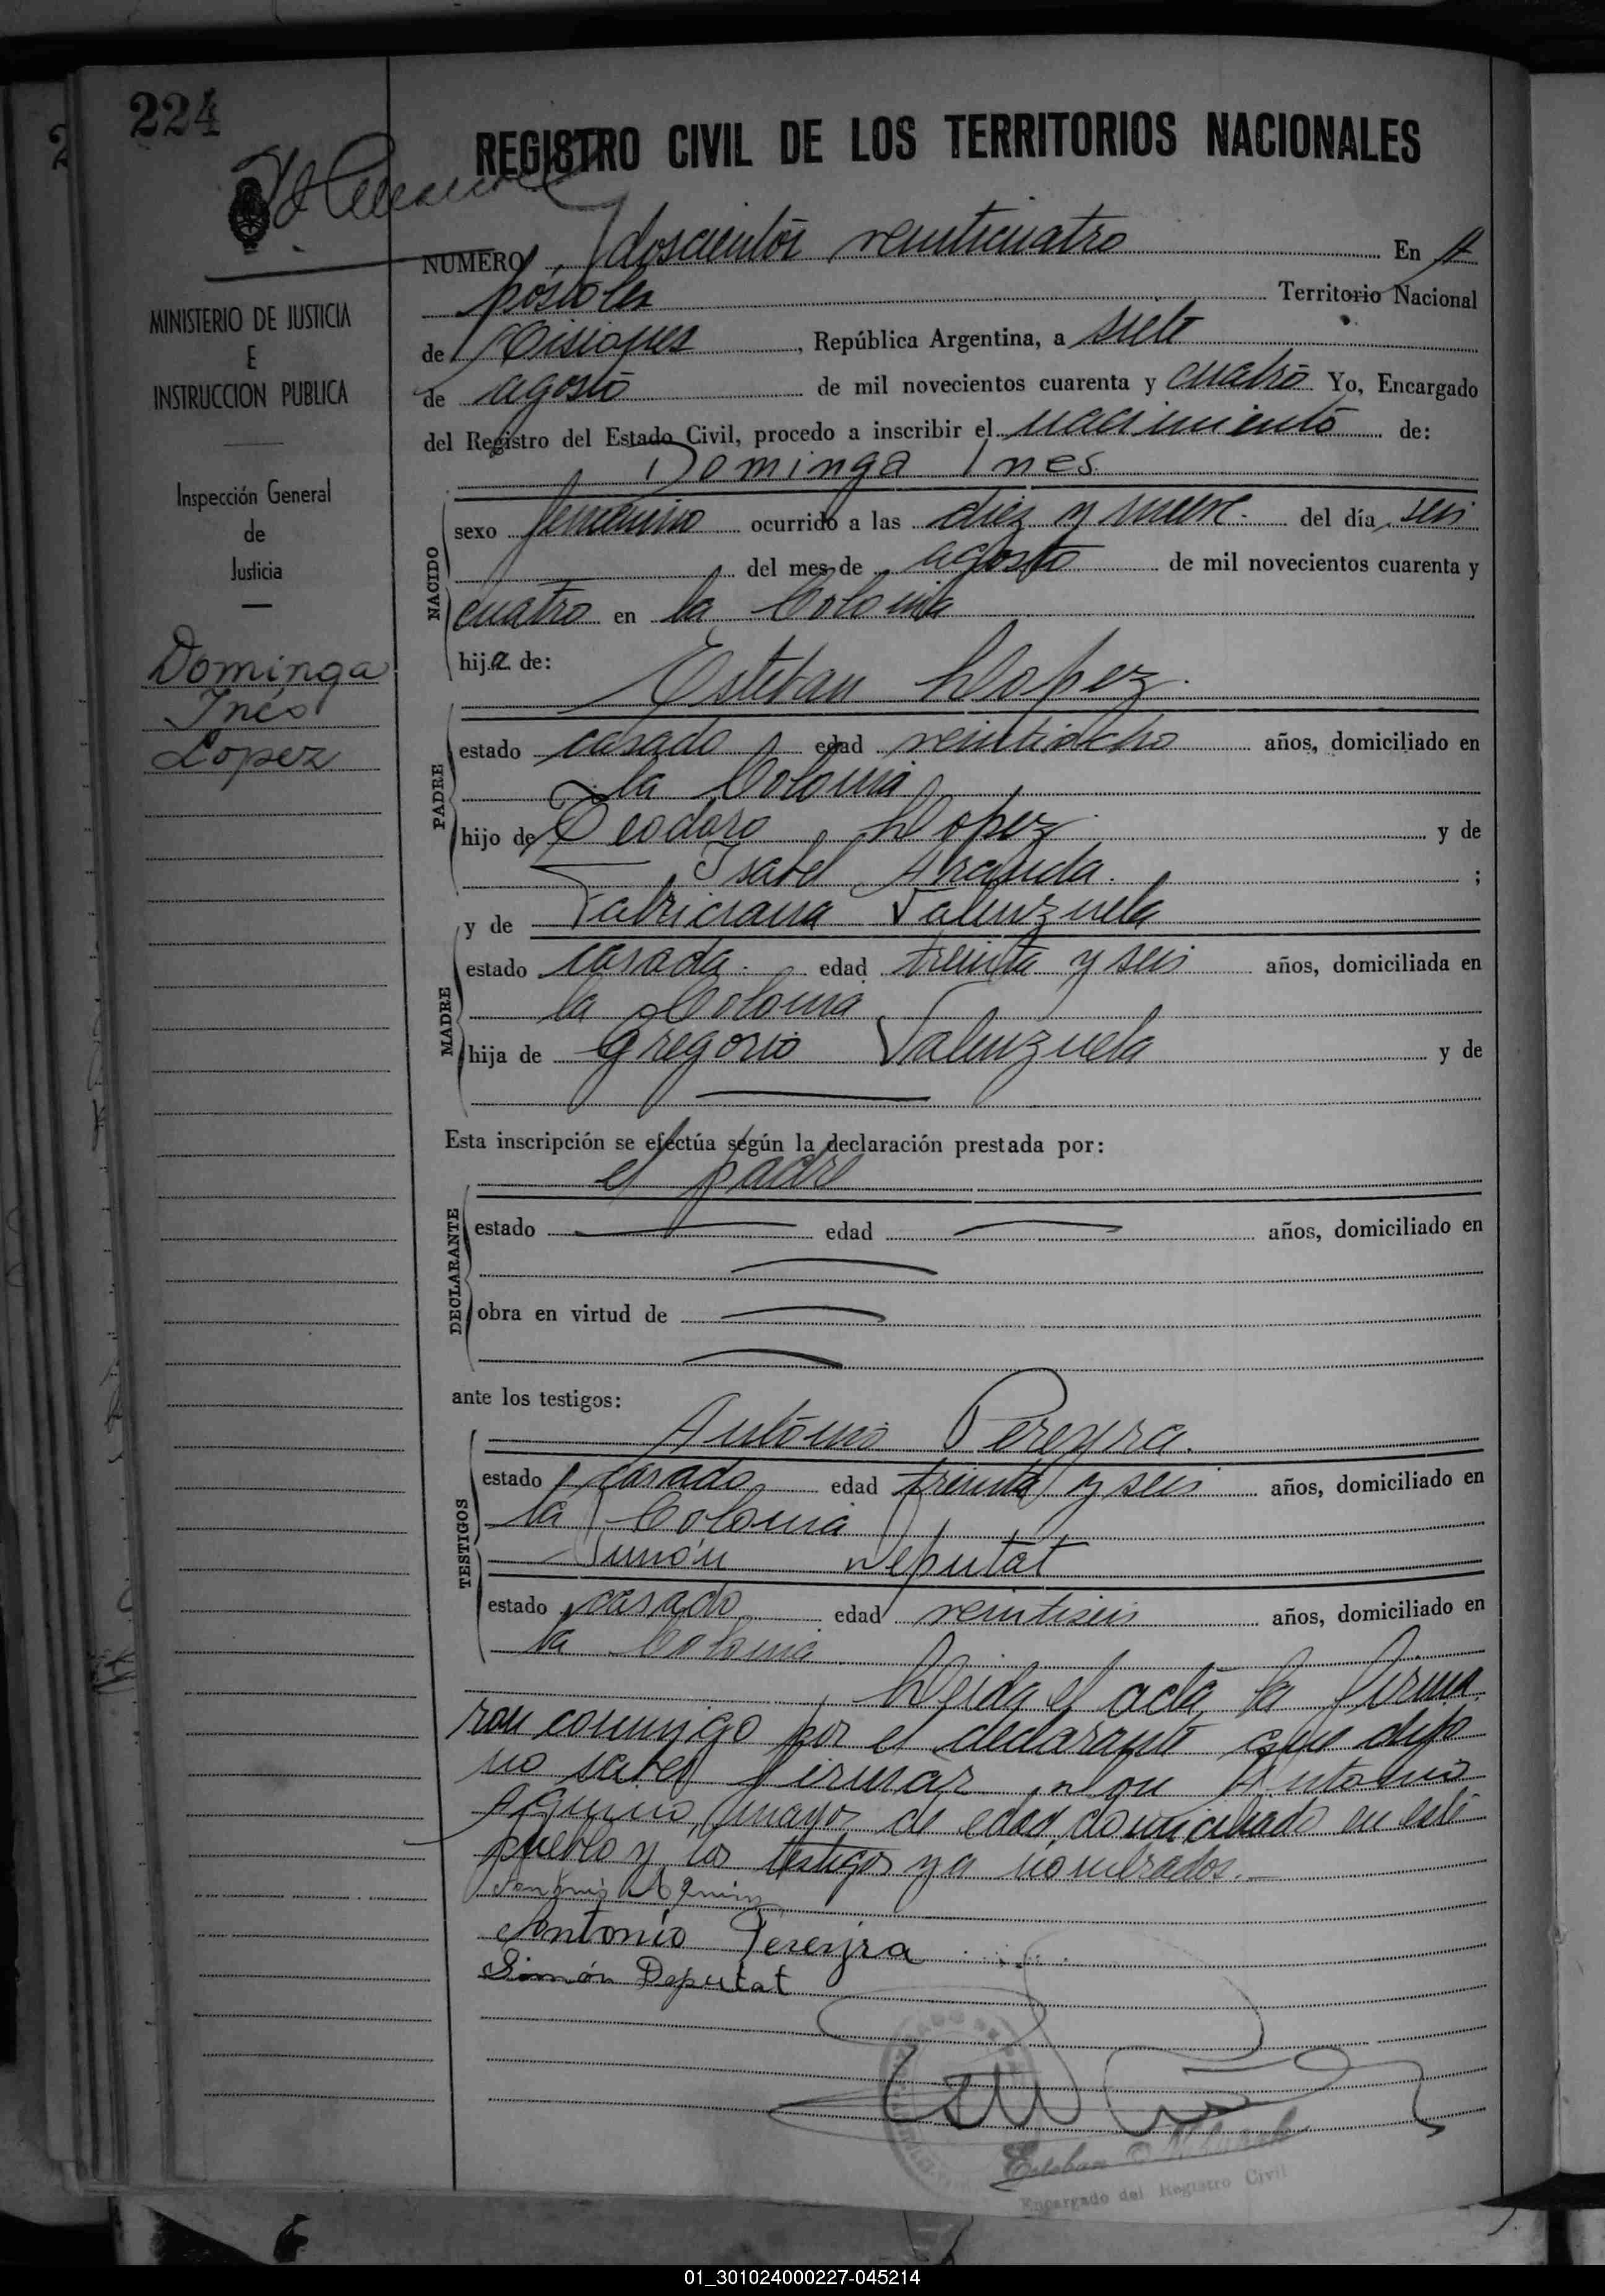 224
REGISTRO CIVIL DE LOS TERRITORIOS NACIONALES
NUMERO doscientos veinticuatro En A
póstoles Territorio Nacional
de Misiones, República Argentina, a siete
de agosto de mil novecientos cuarenta y cuatro Yo, Encargado
del Registro del Estado Civil, procedo a inscribir el nacimiento de:
Dominga Ines.
MINISTERIO DE JUSTICIA
E
INSTRUCCION PUBLICA
Inspección General
de
Justicia
Dominga
Inés
Lopez
NACIDO
sexo femenino ocurrido a las diez y nueve. del día seis
del mes de agosto de mil novecientos cuarenta y
cuatro en la Colonia
hija de:
Esteban Lopez.
PADRE
estado casado edad veintiocho años, domiciliado en
la Colonia
hijo de Teodoro Lopez y de
Isabel Aranda. ;
y de Fabriciana Valenzuela
MADRE
estado casada. edad treinta y seis años, domiciliada en
la Colonia
hija de Gregorio Valenzuela y de
Esta inscripción se efectúa según la declaración prestada por:
el padre
DECLARANTE
estado edad años, domiciliado en
obra en virtud de
ante los testigos:
Antonio Pereyra.
TESTIGOS
estado casado edad treinta y seis años, domiciliado en
la Colonia
Simón Deputat
estado casado edad veintiseis años, domiciliado en
la Colonia
Leida el acta, la firma
ron conmigo por el declarante que dijo
no saber firmar, don Antonio
Aquino, mayor de edad, domiciliado en este
pueblo y los testigos ya nombrados.
Antonio Aquino
Antonio Pereyra
Simón Deputat
Esteban
Encargado del Registro Civil
01_301024000227-045214